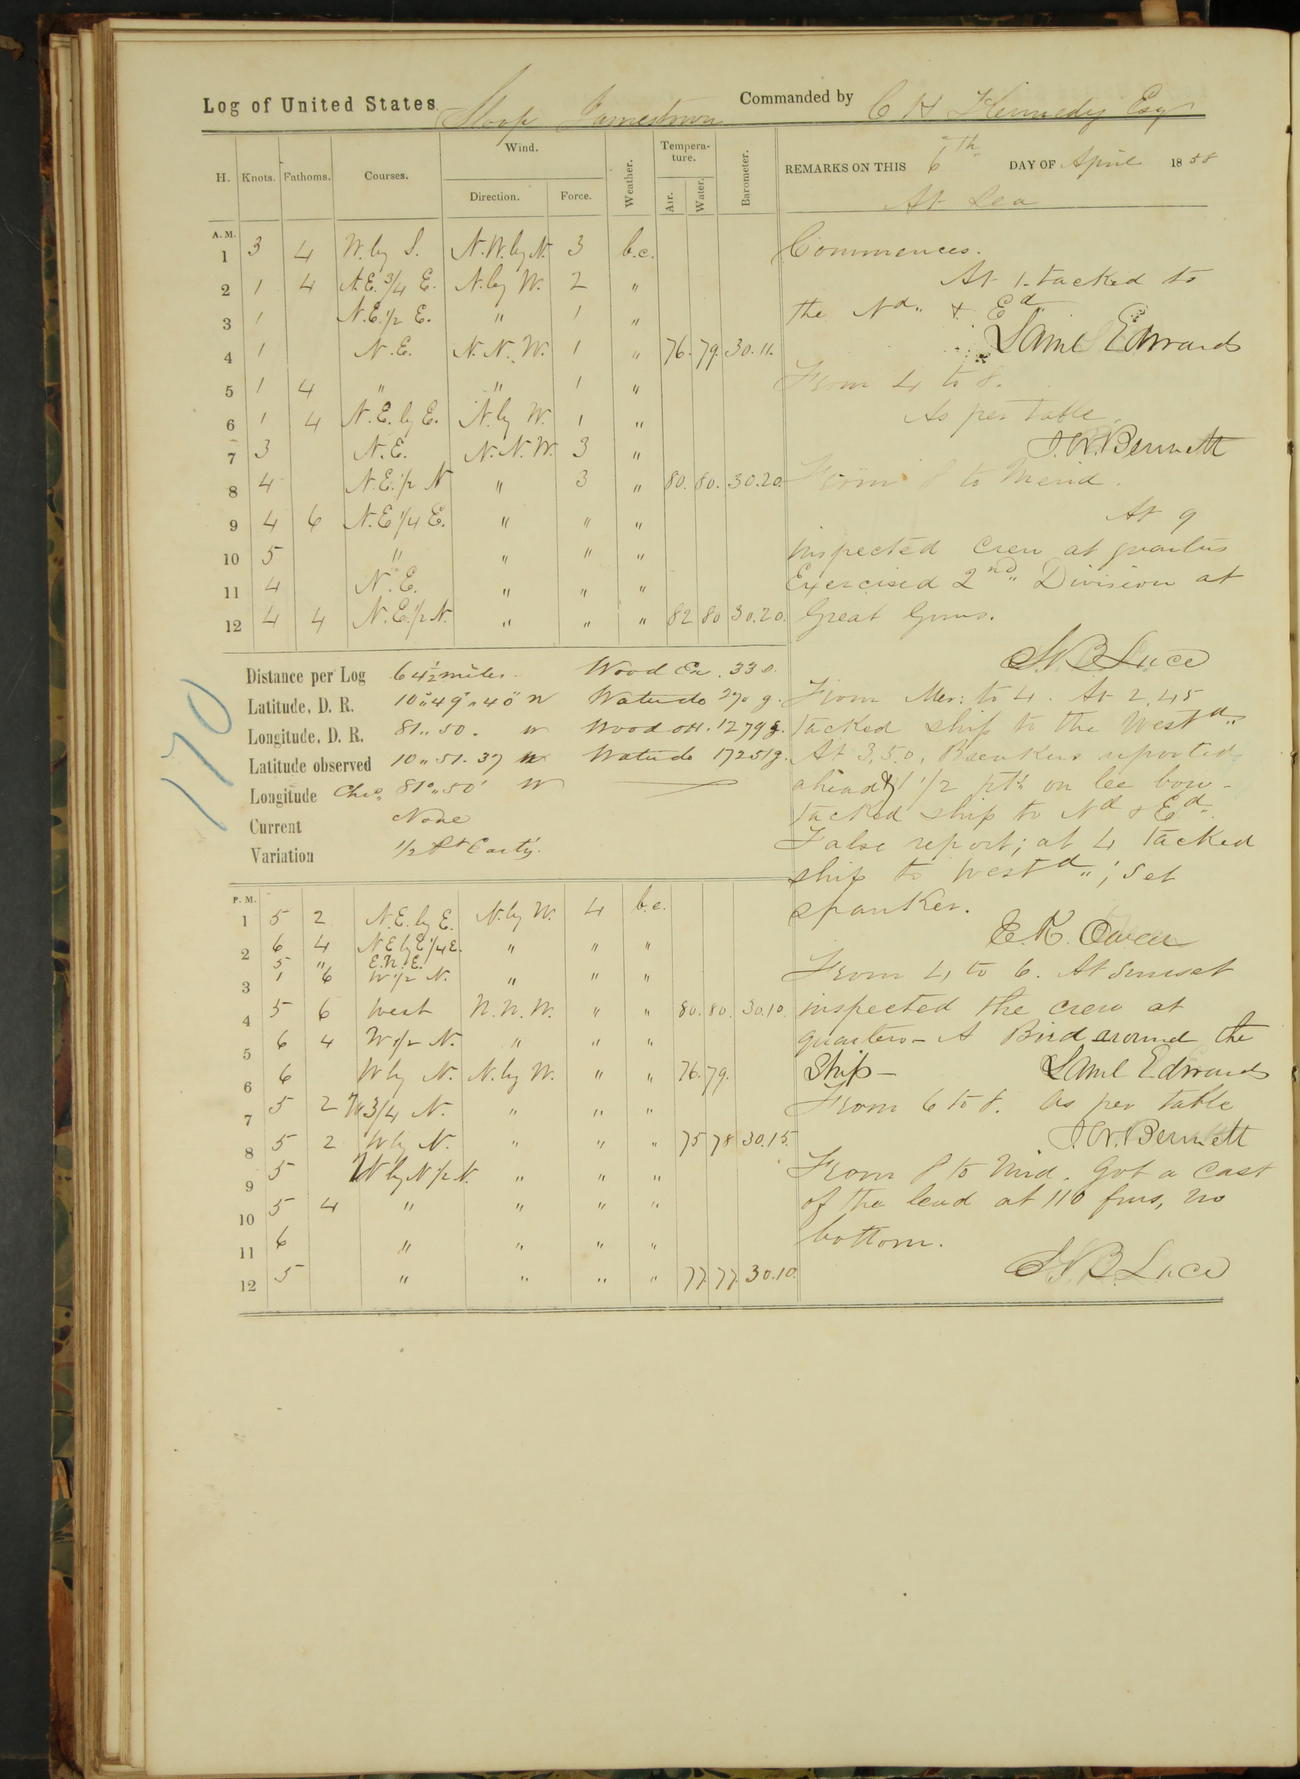 Log of United States Sloop Jamestown Commanded by C H Kennedy Esq
H. Knots. Fathoms. Courses. Wind. Direction. Force. Weather. Tempera-ture. Air. Water. Barometer.
REMARKS ON THIS 6th DAY OF April 1858
At Sea
A. M.
1 3 4 W. by S. N.W. by N. 3 b.c.
2 1 4 N.E. 3/4 E. N. by W. 2 "
3 1 N.E. 1/2 E. " 1 "
4 1 N.E. N.N.W. 1 " 76. 79. 30.11.
5 1 4 " " 1 "
6 1 4 N.E. by E. N. by W. 1 "
7 3 N.E. N.N.W. 3 "
8 4 N.E. 1/2 N " 3 " 80. 80. 30.20.
9 4 6 N.E 1/4 E. " " "
10 5 " " " "
11 4 N.E. " " "
12 4 4 N.E. 1/2 N. " " " 82 80 30.20.
Commences.
At 1 tacked to
the Nd " & Ed
Saml Edwards
From 4 to 8.
As per table
J.W. Bennett
From 8 to Merid.
At 9
inspected crew at quarters
Exercised 2nd " Division at
Great Guns.
S.B. Luce
Distance per Log 64 1/2 miles. Wood Ex. 330.
Latitude, D. R. 10°" 49' " 40" N Water do 270 g.
Longitude, D. R. 81 " 50. W Wood OH. 12798.
Latitude observed 10 " 51. 37 N Water do 17251 g.
Longitude Chro. 81° " 50' W
Current None
Variation 1/2 Pt East'y.
170
From Mer: to 4. At 2.45
tacked ship to the Westd "
At 3.50, Breakers reported
ahead & 1 1/2 pts on lee bow -
tacked ship to Nd & Ed.
False report; at 4 tacked
ship to Westd "; Set
spanker.
E.K. Owen
P. M.
1 5 2 N.E. by E. N. by W. 4 b.c.
2 6 4 N E by E 1/4 E. " " "
5 " E.N.E.
3 1 6 W 1/2 N. " " "
4 5 6 West N.N.W. " " 80. 80. 30.10.
5 6 4 W 1/2 N. " " "
6 6 W by N. N. by W. " " 76. 79.
7 5 2 W 3/4 N. " " "
8 5 2 W by N. " " " 75 78 30.15.
9 5 W by N 1/2 N. " " "
10 5 4 " " " "
11 6 " " " "
12 5 " " " " 77. 77. 30.10.
From 4 to 6. At Sunset
inspected the crew at
quarters - A Bird around the
Ship - Saml Edwards
From 6 to 8. As per table
J.W. Bennett
From 8 to Mid. Got a cast
of the lead at 110 fms, no
bottom.
S.B. Luce